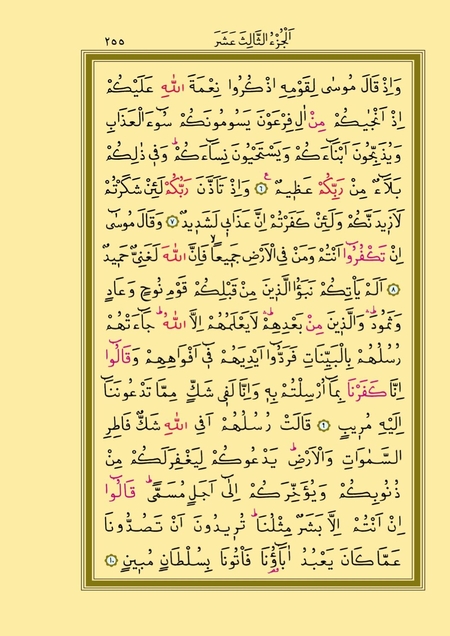 اَلْجُزْءُ الثَّالِثَ عَشَرَ ٢٥٥
وَاِذْ قَالَ مُوسٰى لِقَوْمِهِ اذْكُرُوا نِعْمَةَ اللّٰهِ عَلَيْكُمْ
اِذْ اَنْجٰيكُمْ مِنْ اٰلِ فِرْعَوْنَ يَسُومُونَكُمْ سُٓوءَ الْعَذَابِ
وَيُذَبِّحُونَ اَبْنَٓاءَكُمْ وَيَسْتَحْيُونَ نِسَٓاءَكُمْۜ وَف۪ي ذٰلِكُمْ
بَلَٓاءٌ مِنْ رَبِّكُمْ عَظ۪يمٌ۟ ﴿٦﴾ وَاِذْ تَاَذَّنَ رَبُّكُمْ لَئِنْ شَكَرْتُمْ
لَاَز۪يدَنَّكُمْ وَلَئِنْ كَفَرْتُمْ اِنَّ عَذَاب۪ي لَشَد۪يدٌ ﴿٧﴾ وَقَالَ مُوسٰٓى
اِنْ تَكْفُرُٓوا اَنْتُمْ وَمَنْ فِي الْاَرْضِ جَم۪يعًاۙ فَاِنَّ اللّٰهَ لَغَنِيٌّ حَم۪يدٌ
﴿٨﴾ اَلَمْ يَأْتِكُمْ نَبَؤُا الَّذ۪ينَ مِنْ قَبْلِكُمْ قَوْمِ نُوحٍ وَعَادٍ
وَثَمُودَۜۛ وَالَّذ۪ينَ مِنْ بَعْدِهِمْۜۛ لَا يَعْلَمُهُمْ اِلَّا اللّٰهُۜ جَٓاءَتْهُمْ
رُسُلُهُمْ بِالْبَيِّنَاتِ فَرَدُّٓوا اَيْدِيَهُمْ ف۪ٓي اَفْوَاهِهِمْ وَقَالُٓوا
اِنَّا كَفَرْنَا بِمَٓا اُرْسِلْتُمْ بِه۪ وَاِنَّا لَف۪ي شَكٍّ مِمَّا تَدْعُونَنَٓا
اِلَيْهِ مُر۪يبٍ ﴿٩﴾ قَالَتْ رُسُلُهُمْ اَفِي اللّٰهِ شَكٌّ فَاطِرِ
السَّمٰوَاتِ وَالْاَرْضِۜ يَدْعُوكُمْ لِيَغْفِرَ لَكُمْ مِنْ
ذُنُوبِكُمْ وَيُؤَخِّرَكُمْ اِلٰٓى اَجَلٍ مُسَمًّىۜ قَالُٓوا
اِنْ اَنْتُمْ اِلَّا بَشَرٌ مِثْلُنَاۜ تُر۪يدُونَ اَنْ تَصُدُّونَا
عَمَّا كَانَ يَعْبُدُ اٰبَٓاؤُ۬نَا فَأْتُونَا بِسُلْطَانٍ مُب۪ينٍ ﴿١٠﴾